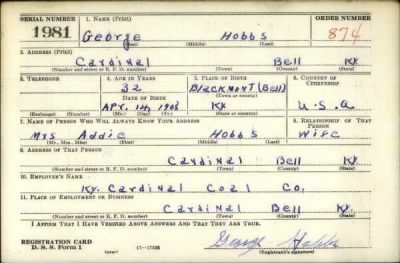 SERIAL NUMBER 1. NAME (Print) ORDER NUMBER
1981 George Hobbs 874
(First) (Middle) (Last)
2. ADDRESS (Print)
Cardinal Bell Ky.
(Number and street or R. F. D. number) (Town) (County) (State)
3. TELEPHONE 4. AGE IN YEARS 5. PLACE OF BIRTH 6. COUNTRY OF CITIZENSHIP
32 Blackmont (Bell)
DATE OF BIRTH (Town or county)
Apr. 14, 1908 Ky U.S.A.
(Exchange) (Number) (Mo.) (Day) (Yr.) (State or country)
7. NAME OF PERSON WHO WILL ALWAYS KNOW YOUR ADDRESS 8. RELATIONSHIP OF THAT PERSON
Mrs Addie Hobbs Wife
(Mr., Mrs., Miss) (First) (Middle) (Last)
9. ADDRESS OF THAT PERSON
Cardinal Bell Ky.
(Number and street or R. F. D. number) (Town) (County) (State)
10. EMPLOYER'S NAME
Ky. Cardinal Coal Co.
11. PLACE OF EMPLOYMENT OR BUSINESS
Cardinal Bell Ky.
(Number and street or R. F. D. number) (Town) (County) (State)
I AFFIRM THAT I HAVE VERIFIED ABOVE ANSWERS AND THAT THEY ARE TRUE.
REGISTRATION CARD
D. S. S. Form 1 George Hobbs
(Registrant's signature)